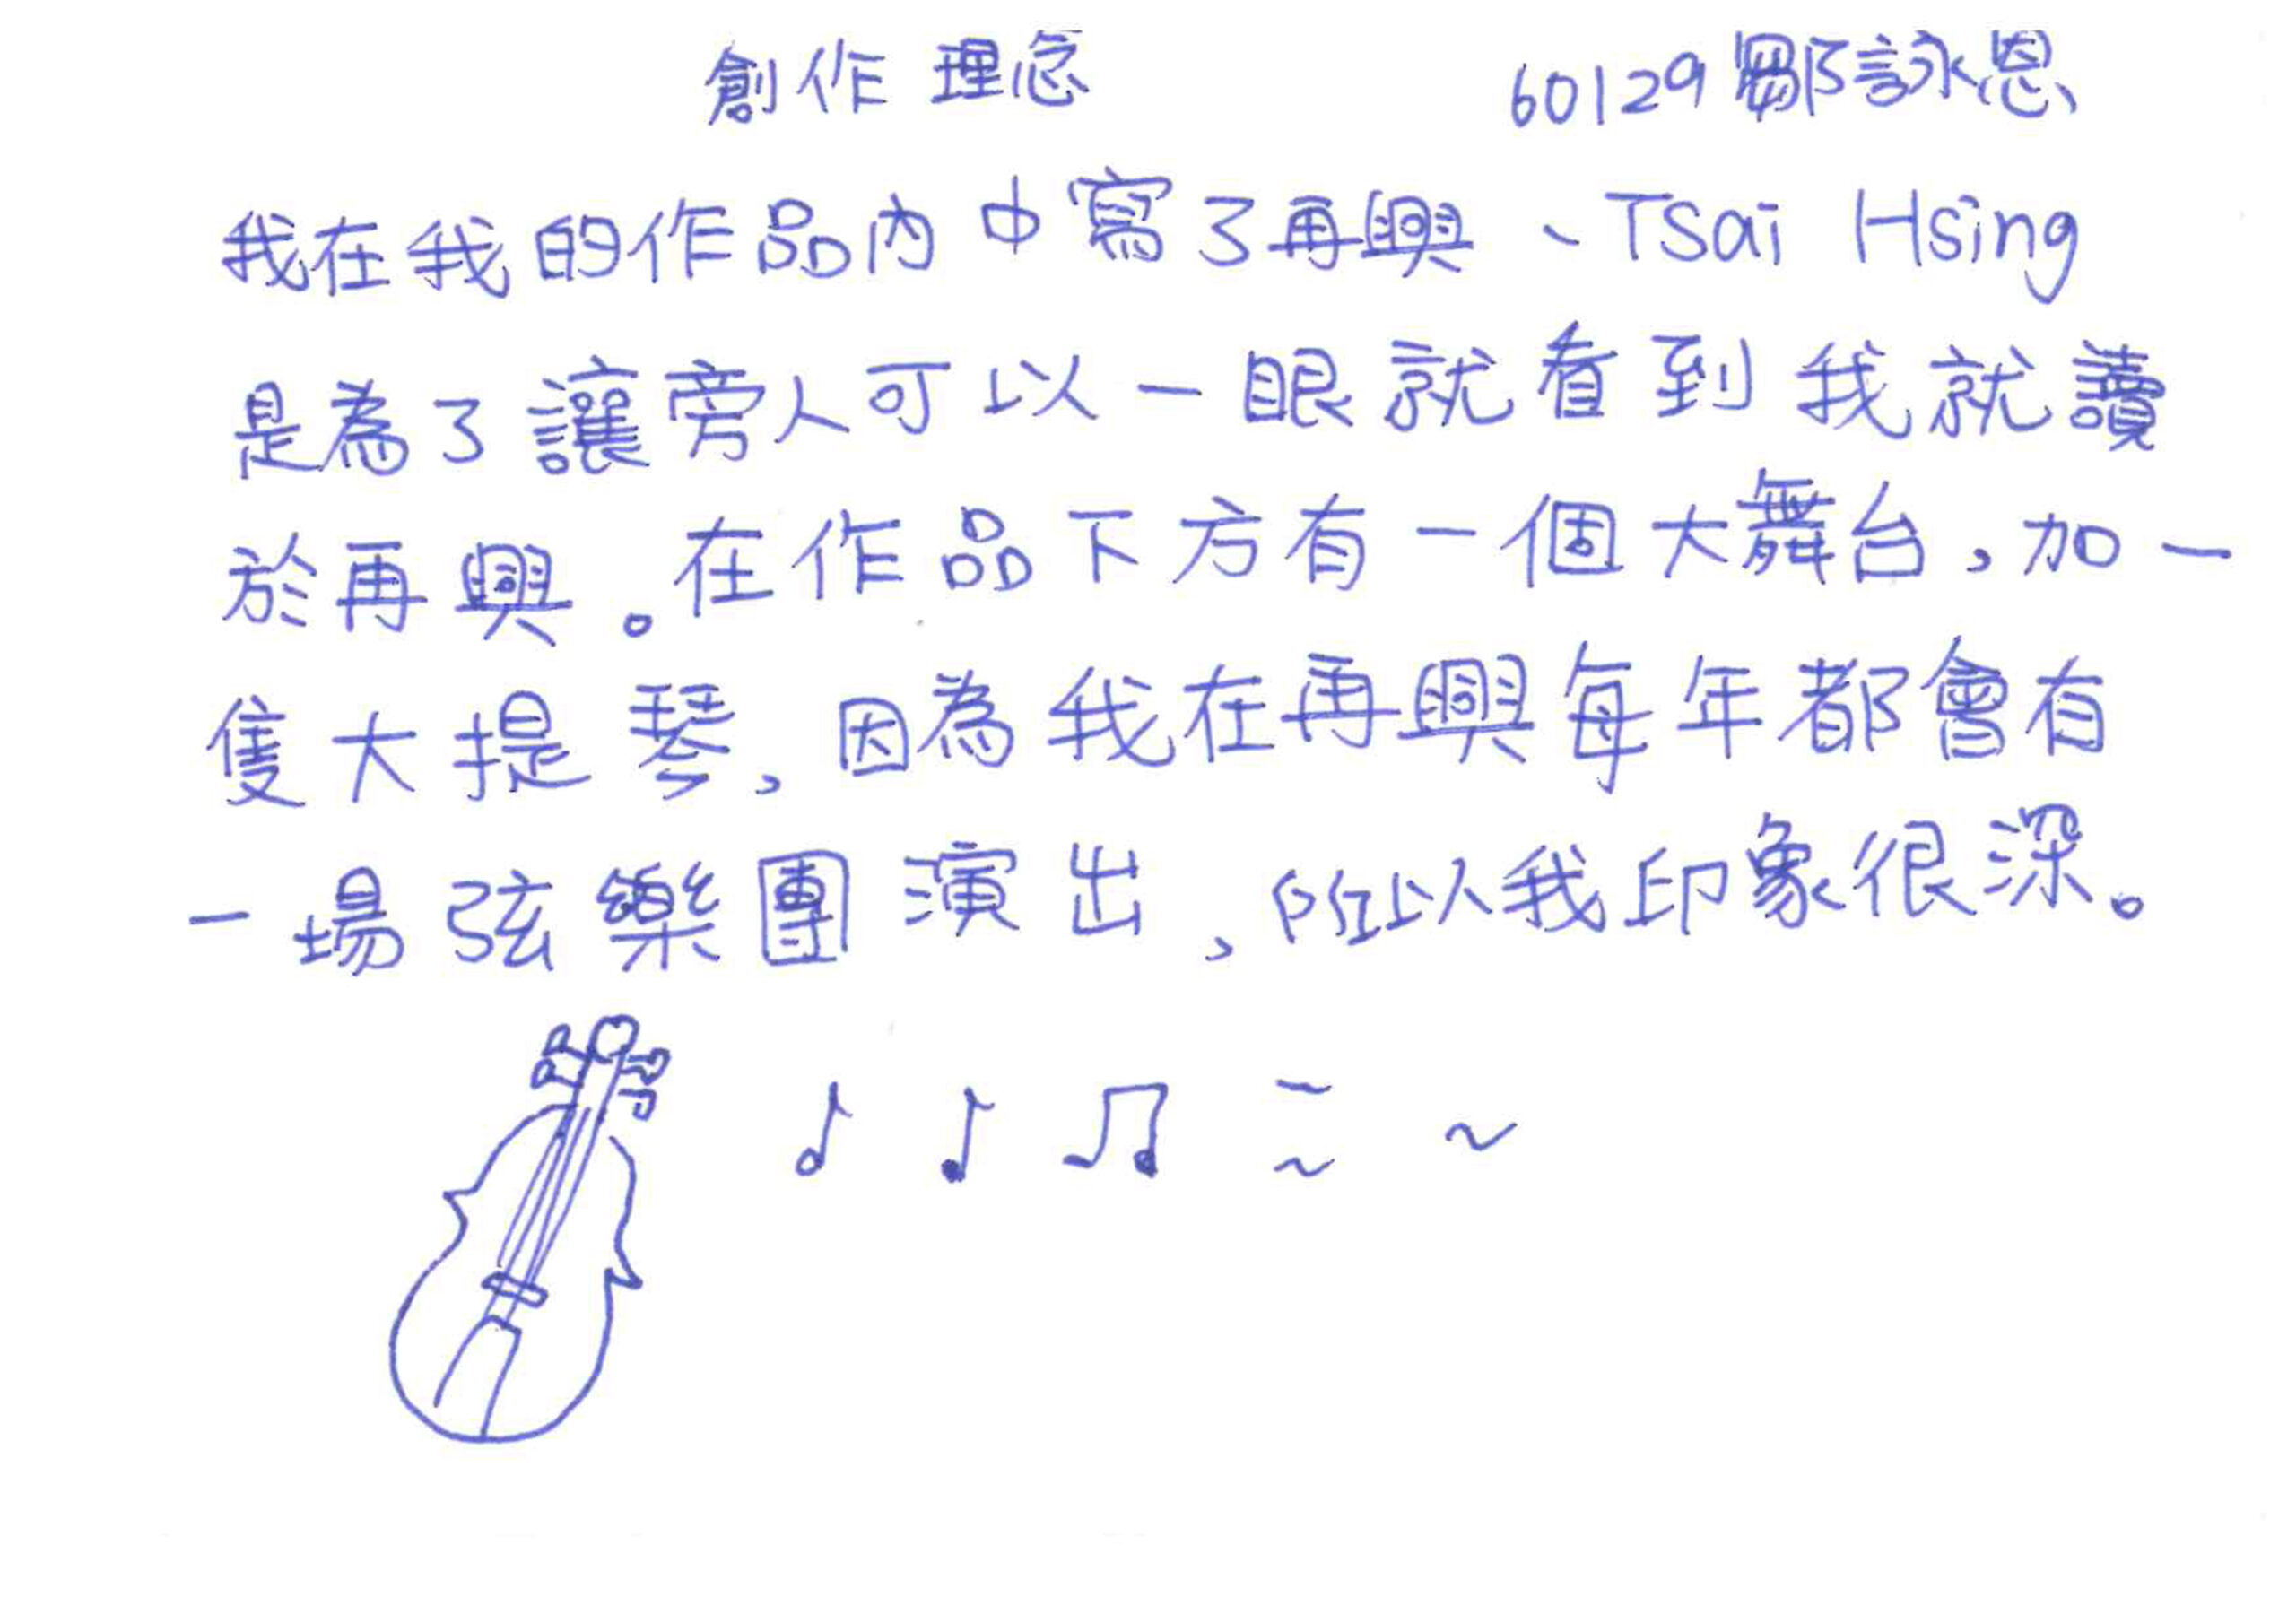 創作理念 60129鄒詠恩
我在我的作品內中寫了再興、Tsai Hsing
是為了讓旁人可以一眼就看到我就讀
於再興。在作品下方有一個大舞台，加一
隻大提琴，因為我在再興每年都會有
一場弦樂團演出，所以我印象很深。